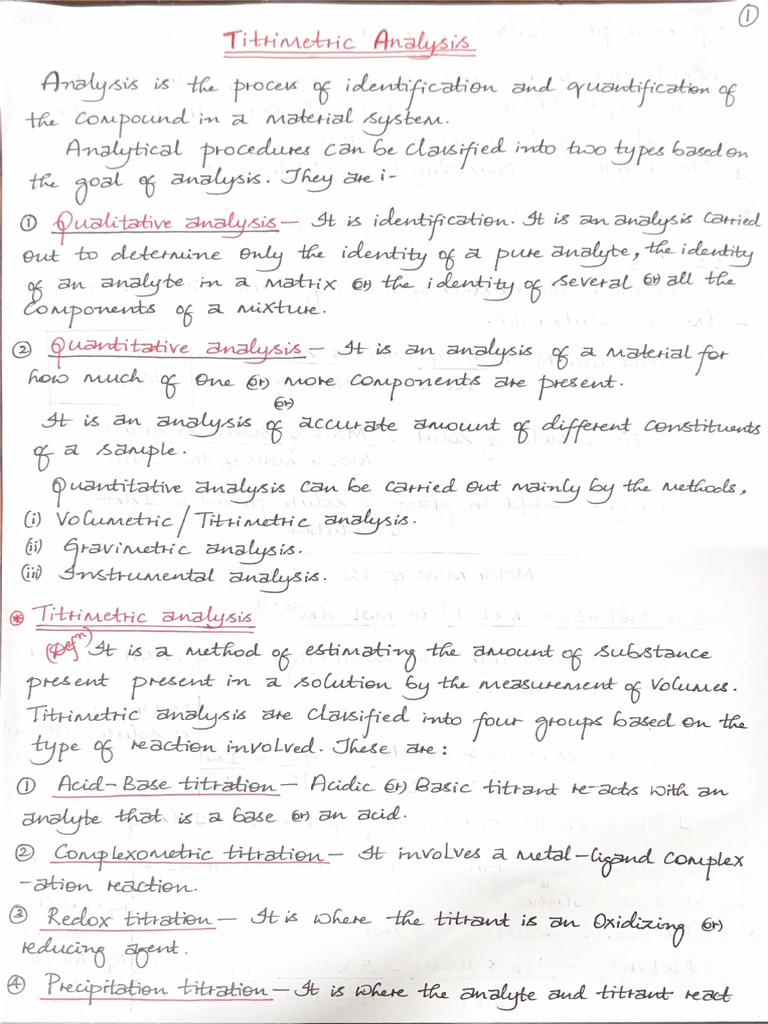 ①
Titrimetric Analysis
Analysis is the process of identification and quantification of
the compound in a material system.
Analytical procedures can be classified into two types based on
the goal of analysis. They are :-
① Qualitative analysis — It is identification. It is an analysis carried
out to determine only the identity of a pure analyte, the identity
of an analyte in a matrix (or) the identity of several (or) all the
components of a mixture.
② Quantitative analysis — It is an analysis of a material for
how much of one (or) more components are present.
(or)
It is an analysis of accurate amount of different constituents
of a sample.
Quantitative analysis can be carried out mainly by the methods,
(i) Volumetric / Titrimetric analysis.
(ii) Gravimetric analysis.
(iii) Instrumental analysis.
* Titrimetric analysis
(Defn) It is a method of estimating the amount of substance
present present in a solution by the measurement of volumes.
Titrimetric analysis are classified into four groups based on the
type of reaction involved. These are :
① Acid-Base titration — Acidic (or) Basic titrant re-acts with an
analyte that is a base (or) an acid.
② Complexometric titration — It involves a metal-ligand complex
-ation reaction.
③ Redox titration — It is where the titrant is an Oxidizing (or)
reducing agent.
④ Precipitation titration — It is where the analyte and titrant react